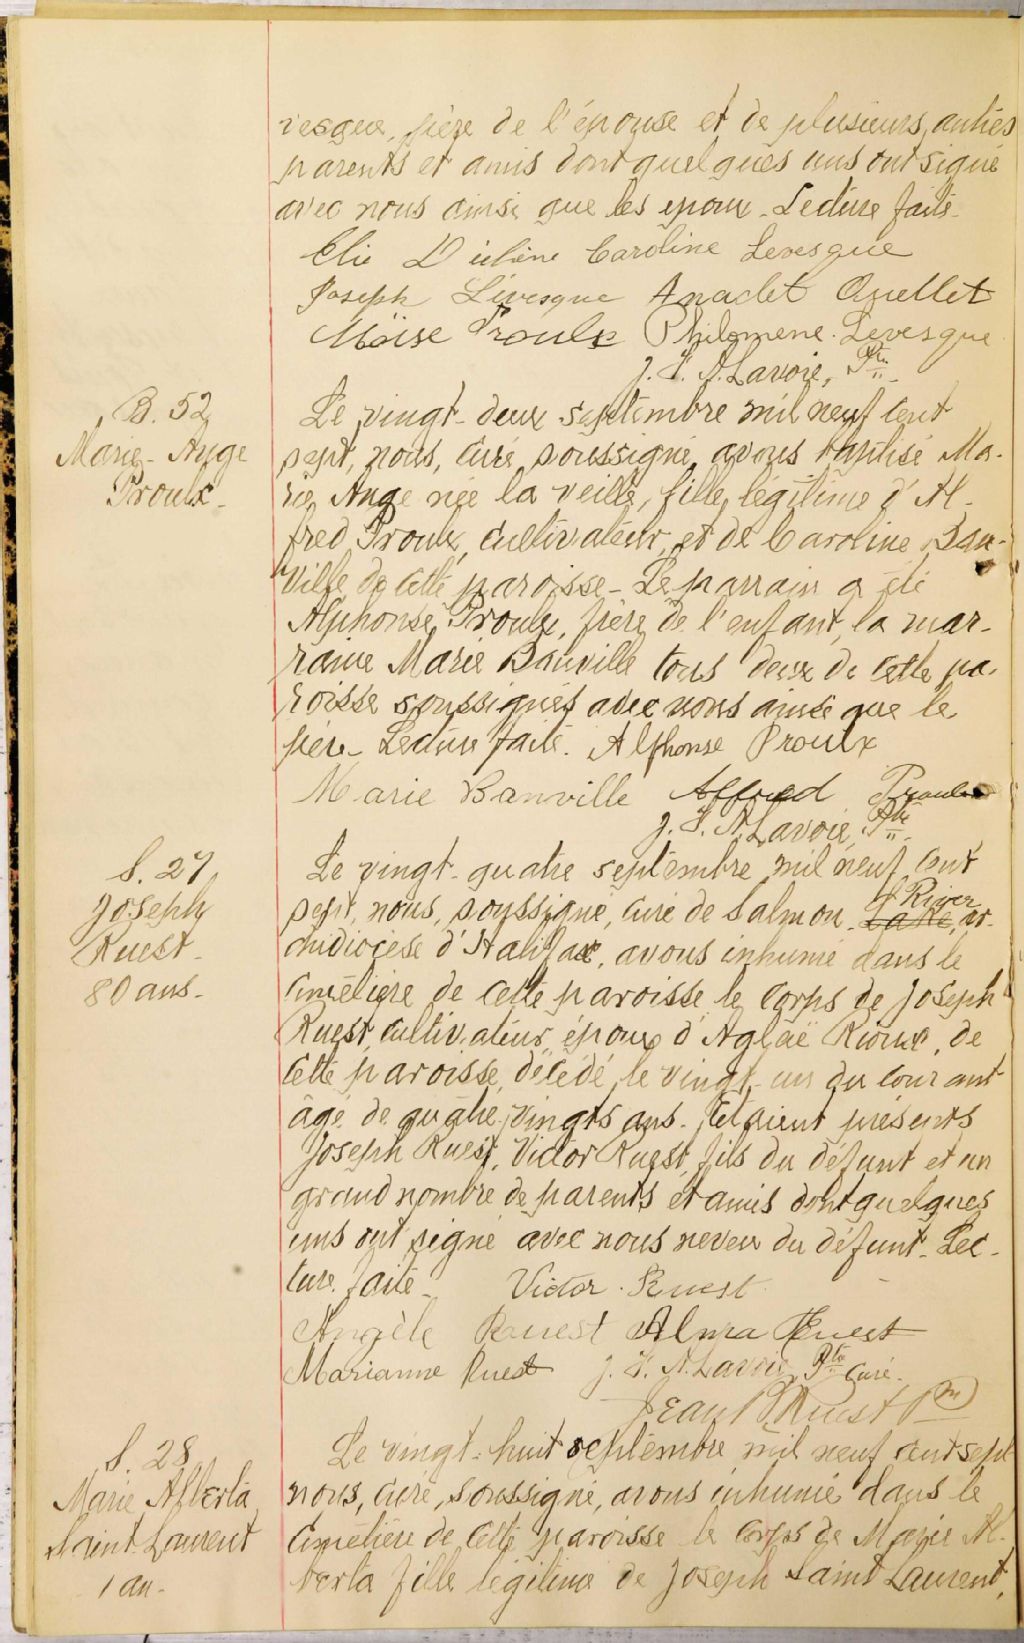 vesque, père de l'épouse et de plusieurs autres
parents et amis dont quelques uns ont signé
avec nous ainsi que les epoux - Lecture faite -
Elie Caroline Levesque
Joseph Lévesque Anaclet Ouellet
Moïse Proulx Philomene Levesque
J. F. A. Lavoie, Ptre
B. 52
Marie-Ange
Proulx -
Le vingt-deux septembre mil neuf cent
sept, nous, curé soussigné, avons baptisé Ma-
rie Ange née la veille, fille légitime d'Al-
fred Proulx, cultivateur, et de Caroline Ban-
ville de cette paroisse - Le parrain a été
Alphonse Proulx, frère de l'enfant, la mar-
raine Marie Banville tous deux de cette pa-
roisse soussignés avec nous ainsi que le
père - Lecture faite. Alphonse Proulx
Marie Banville Alfred Proulx
J. F. A. Lavoie, Ptre
S. 27
Joseph
Ruest -
80 ans -
Le vingt-quatre septembre mil neuf cent
sept, nous, soussigné, curé de Salmon Lake River, ar-
chidiocèse d'Halifax, avons inhumé dans le
cimetière de cette paroisse le corps de Joseph
Ruest, cultivateur, époux d'Aglaë Rioux, de
cette paroisse, décédé le vingt-un du courant
âgé de quatre-vingts ans. Etaient présents
Joseph Ruest, Victor Ruest, fils du défunt et un
grand nombre de parents et amis dont quelques
uns ont signé avec nous neveu du défunt - Lec-
ture faite - Victor Ruest
Angèle Ruest Alma Ruest
Marianne Ruest J. F. A. Lavoie, Ptre Curé.
Jean Ruest Ptre
S. 28
Marie Alberta
Saint Laurent
1 an -
Le vingt-huit septembre mil neuf cent sept
nous, curé, soussigné, avons inhumé dans le
cimetière de cette paroisse le corps de Marie Al-
berta fille légitime de Joseph Saint Laurent,